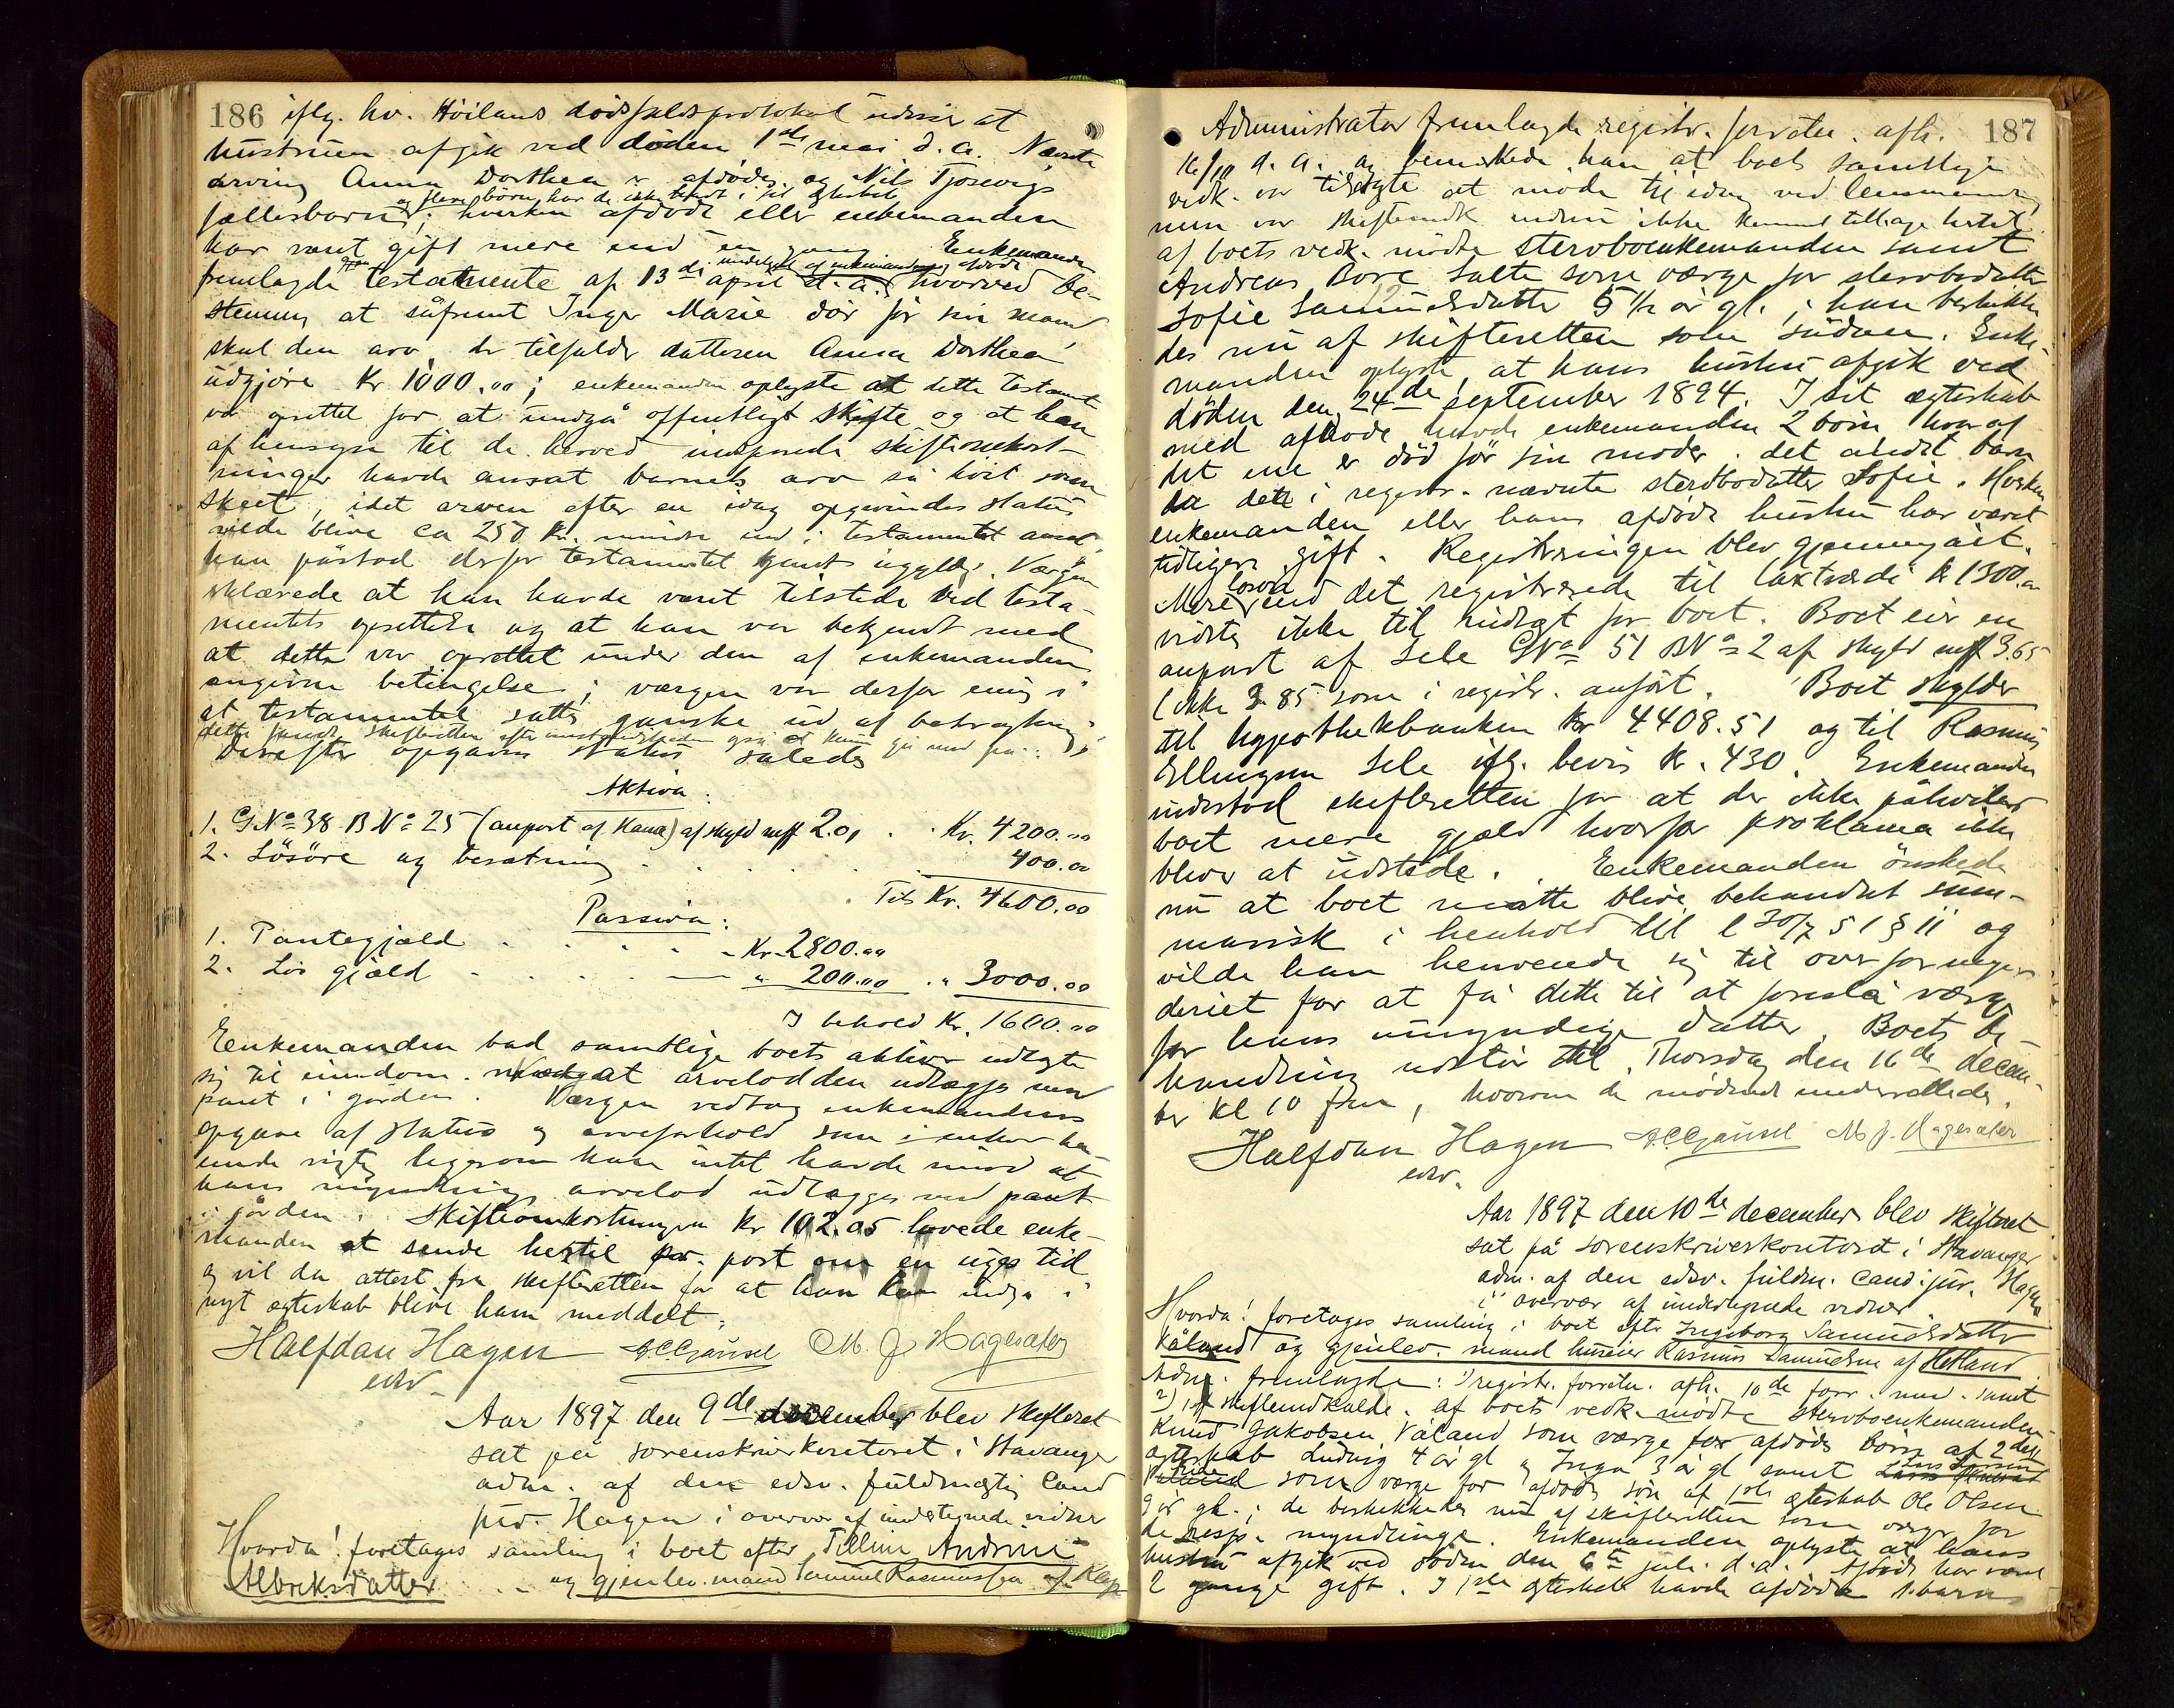 186 iflg. hr. Höilans dödsfaldsprotokol udvise at
hustruen afgik ved döden 1ste mai d.a. Nævnte
arving Anna Dorthea er afdödes og Nils Tjosevigs
og flere börn har de ikke havt i sit ægteskab
fællesbarn; hverken afdöde eller enkemanden
har været gift mere end en gang Enkemanden
fremlagde testamente af 13de april d.a. hvorved be-
stemmes at såfremt Inger Marie dör för sin mand
skal den arv, der tilfalder datteren Anna Dorthea
udgjöre Kr 1000.00; enkemanden oplyste at dette testament
var oprettet for at undgå offentligt skifte og at han
af hensyn til de herved insparede skifteomkost-
ninger havde ansat barnets arv så höit som
skeet, idet arven efter en idag opgivendes status
vilde blive ca 250 Kr. mindre end i testamentet ansat,
han påstod derfor testamentet kjendt ugyldigt. Værgen
erklærede at han havde været tilstede ved testa-
mentets oprettelse og at han var bekjendt med
at dette var oprettet under den af enkemanden
angivne betingelse; værgen var derfor enig i
at testamentet sattes ganske ud af betragtning;
dette fandt skifteretten efter omstændigheden også at kunne gå med på.
Derefter opgaves status således
Aktiva:
1. GNo 38 BNo 25 (anpart af Kana) af skyld mrk 2.01 . . Kr. 4200.00
2. Lösöre og besætning . . . . 400.00
Tils Kr. 4600.00
Passiva:
1. Pantegjæld . . . . - Kr. 2800.00
2. Lös gjæld . . . . — " 200.00 . " 3000.00
I behold Kr. 1600.00
Enkemanden bad samtlige boets aktiver udlagte
sig til eiendom. at arvelodden udlægges med
pant i gården. Værgen vedtog enkemandens
opgave af status og arveforhold som i enhver hen-
seende rigtig ligesom han intet havde imod at
hans myndlings arvelod udlægges med pant
i gården. Skifteomkostningen Kr 102.05 lovede enke-
manden at sende hertil pr. post om en uges tid
og vil da attest fra skifteretten for at han kan indgå i
nyt ægteskab blive ham meddelt.
Halfdan Hagen A.C.Gjausel M. J. Hagesæter
edsv.
Aar 1897 den 9de december blev skifteret
sat på sorenskriverkontoret i Stavanger
adm. af den edsv. fuldmægtig Cand
jur. Hagen i overvær af undertegnede vidner
Hvorda! foretages samling i boet efter Tilline Andrine
Albreksdatter og gjenlev. mand Samuel Rasmussen af Klep
187
Administrator fremlagde registr. forretn. afh.
16/10 d.a. og bemærkede han at boets samtlige
vedk. var tilsagte at möde til idag ved lensmanden
men var skifteindk endnu ikke kommet tilbage hertil
af boets vedk. mödte stervboenkemanden samt
Andreas Bore Salte som værge for stervbodatter
Sofie Samuelsdatter 5 1/2 år gl.; han beskikke-
des nu af skifteretten som sådan. Enke-
manden oplyste at hans hustru afgik ved
döden den 24de september 1894. I sit ægteskab
med afdöde havde enkemanden 2 börn hvoraf
det ene er död för sin moder. det andet barn
er det i registr. nævnte stervbodatter Sofie. Hverken
enkemanden eller hans afdöde hustru har været
tidligere gift. Registreringen blev gjennemgået.
Mere lösöre end det registrerede til taxtværdi Kr 1300.00
vidstes ikke til indtægt for boet. Boet eier en
anpart af Sele GNo 51 BNo 2 af skyld mrk 3.65
(ikke 3 85 som i registr. anfört. Boet skylder
til hypothekbanken Kr 4408.51 og til Rasmus
Ellingsen Sele iflg. bevis Kr. 430. Enkemanden
indestod skifteretten for at der ikke påhviler
boet mere gjæld hvorfor proklama ikke
bliver at udstede. Enkemanden önskede
nu at boet måtte blive behandlet sum-
marisk i henhold til l 30/7 51 § 11 og
vilde han henvende sig til overformyn-
deriet for at få dette til at foreslå værge
for hans umyndige datter. Boets be-
handling udstår til Thorsdag den 16de decem-
ber kl 10 fm, hvorom de mödende underrettedes.
Halfdan Hagen A.C.Gjausel M. J. Hagesæter
edsv.
Aar 1897 den 10de december blev skifteret
sat på sorenskriverkontoret i Stavanger
adm. af den edsv. fuldm. Cand. jur. Hagen
i overvær af undertegnede vidner
Hvorda! foretages samling i boet efter Ingeborg Samuelsdatter
Våland og gjenlev. mand huseier Rasmus Samuelsen af Hetland
Adm. fremlagde: 1) registr. forretn. afh. 10de forr. mnd. samt
2) skifteindkalde. af boets vedk. mödte stervboenkemanden
Knud Jakobsen Våland som værge for afdödes börn af 2det
ægteskab Ludvig 4 år gl og Inga 3 år gl samt Lars Larsen
som værge for afdödes sön af 1ste ægteskab Ole Olsen
9 år gl.; de beskikkedes nu af skifteretten som værger for
de resp. myndlinge. Enkemanden oplyste at hans
hustru afgik ved döden den 6te juli d.a. Afdöde har været
2 gange gift. I 1ste ægteskab havde afdöde 1 barn